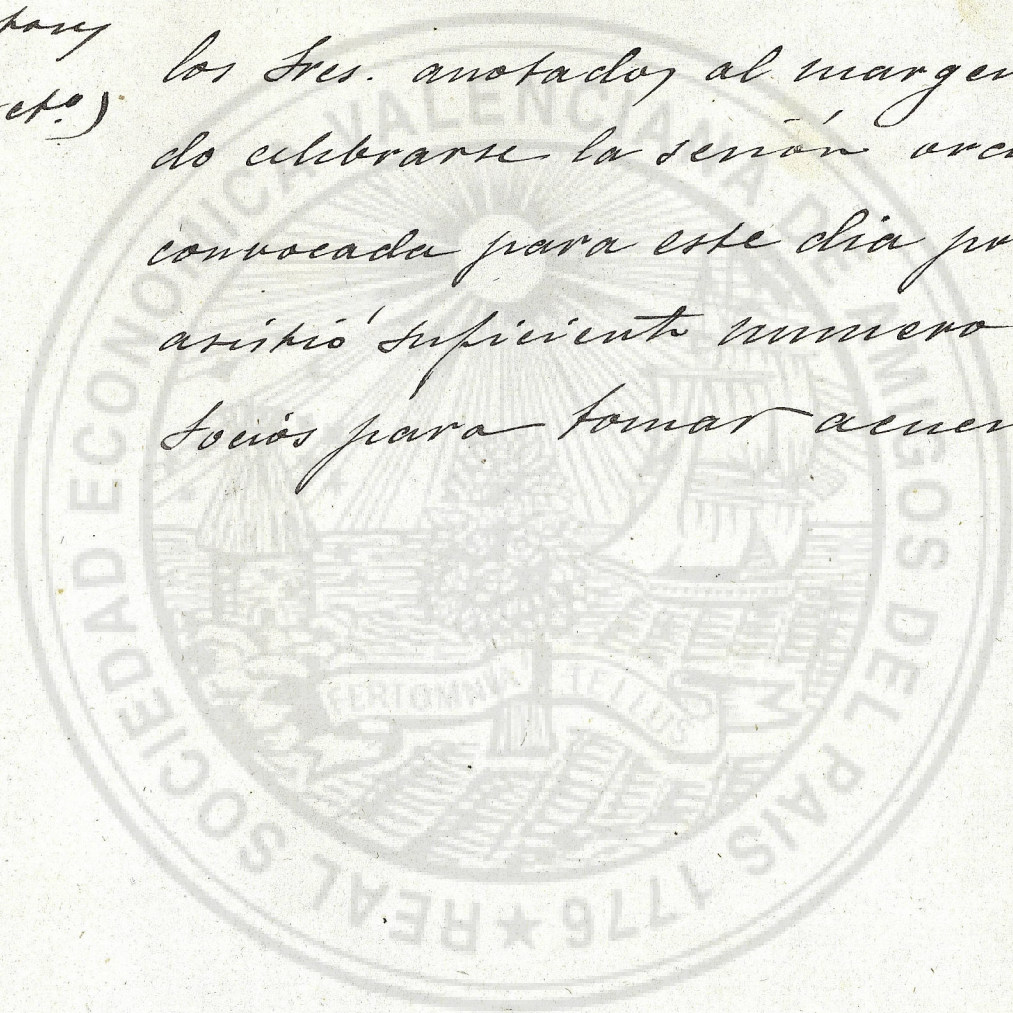 los Sres. anotados al margen
do celebrarse la sesión ord
convocada para este dia po
asistió suficiente numero
Socios para tomar acuer
REAL SOCIEDAD ECONOMICA VALENCIANA DE AMIGOS DEL PAIS 1776
FERT OMNIA TELLUS